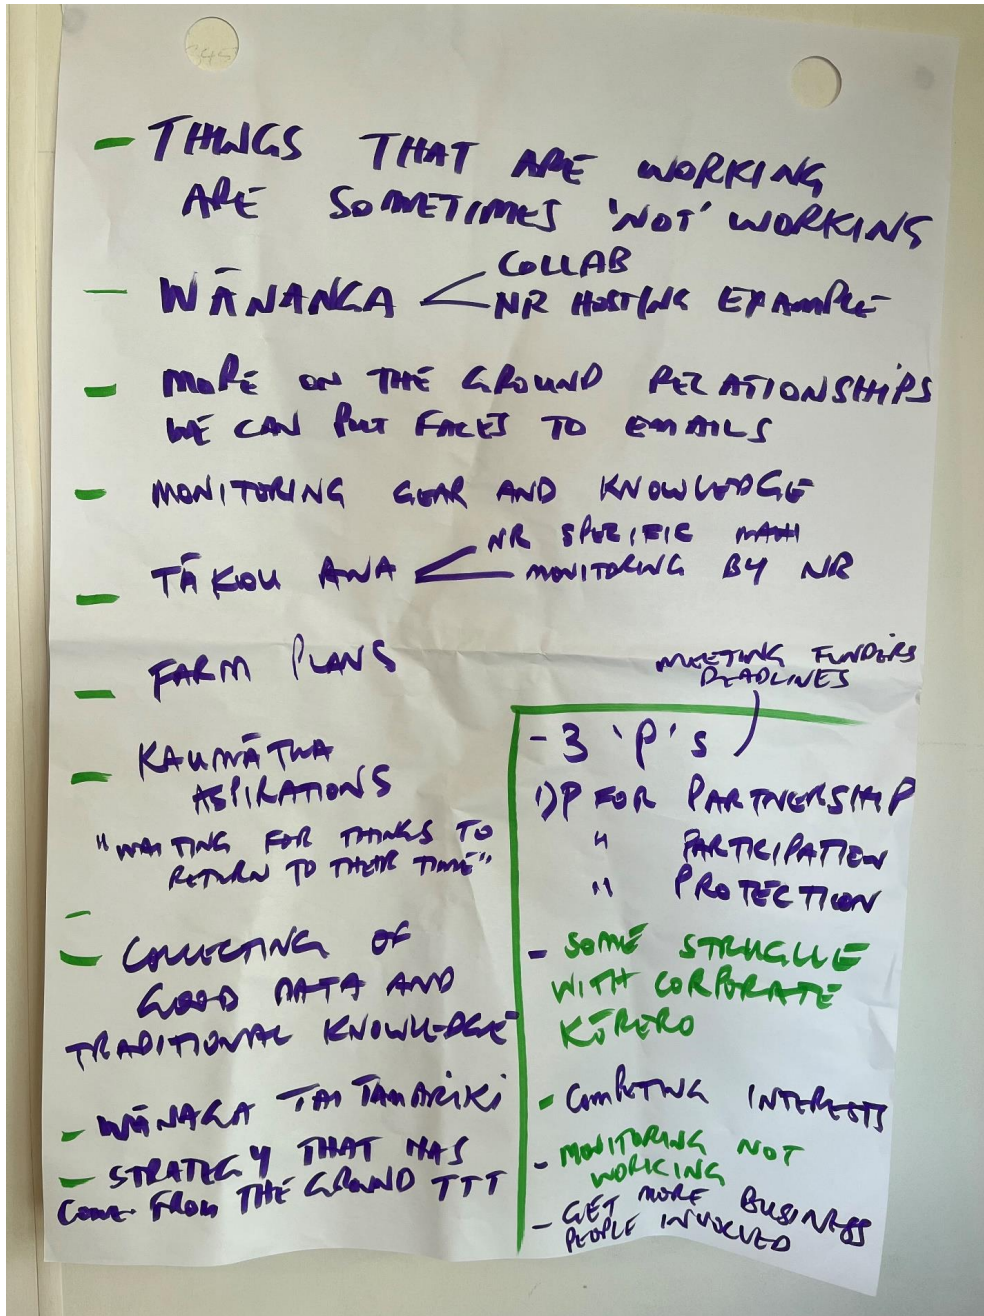 - THINGS THAT ARE WORKING
ARE SOMETIMES 'NOT' WORKING
- WĀNANGA < COLLAB
NR HOSTING EXAMPLE
- MORE ON THE GROUND RELATIONSHIPS
WE CAN PUT FACES TO EMAILS
- MONITORING GEAR AND KNOWLEDGE
- TĀKOU AWA < NR SPECIFIC MAHI
MONITORING BY NR
- FARM PLANS
- KAUMĀTUA
ASPIRATIONS
"WAITING FOR THINGS TO
RETURN TO THEIR TIME"
- COLLECTING OF
GOOD DATA AND
TRADITIONAL KNOWLEDGE
- WĀNAGA TAI TAMARIKI
- STRATEGY THAT HAS
COME FROM THE GROUND TTT
MEETING FUNDERS
DEADLINES
- 3 'P's
1) P FOR PARTNERSHIP
" PARTICIPATION
" PROTECTION
- SOME STRUGGLE
WITH CORPORATE
KŌRERO
- COMPETING INTERESTS
- MONITORING NOT
WORKING
- GET MORE BUSINESS
PEOPLE INVOLVED